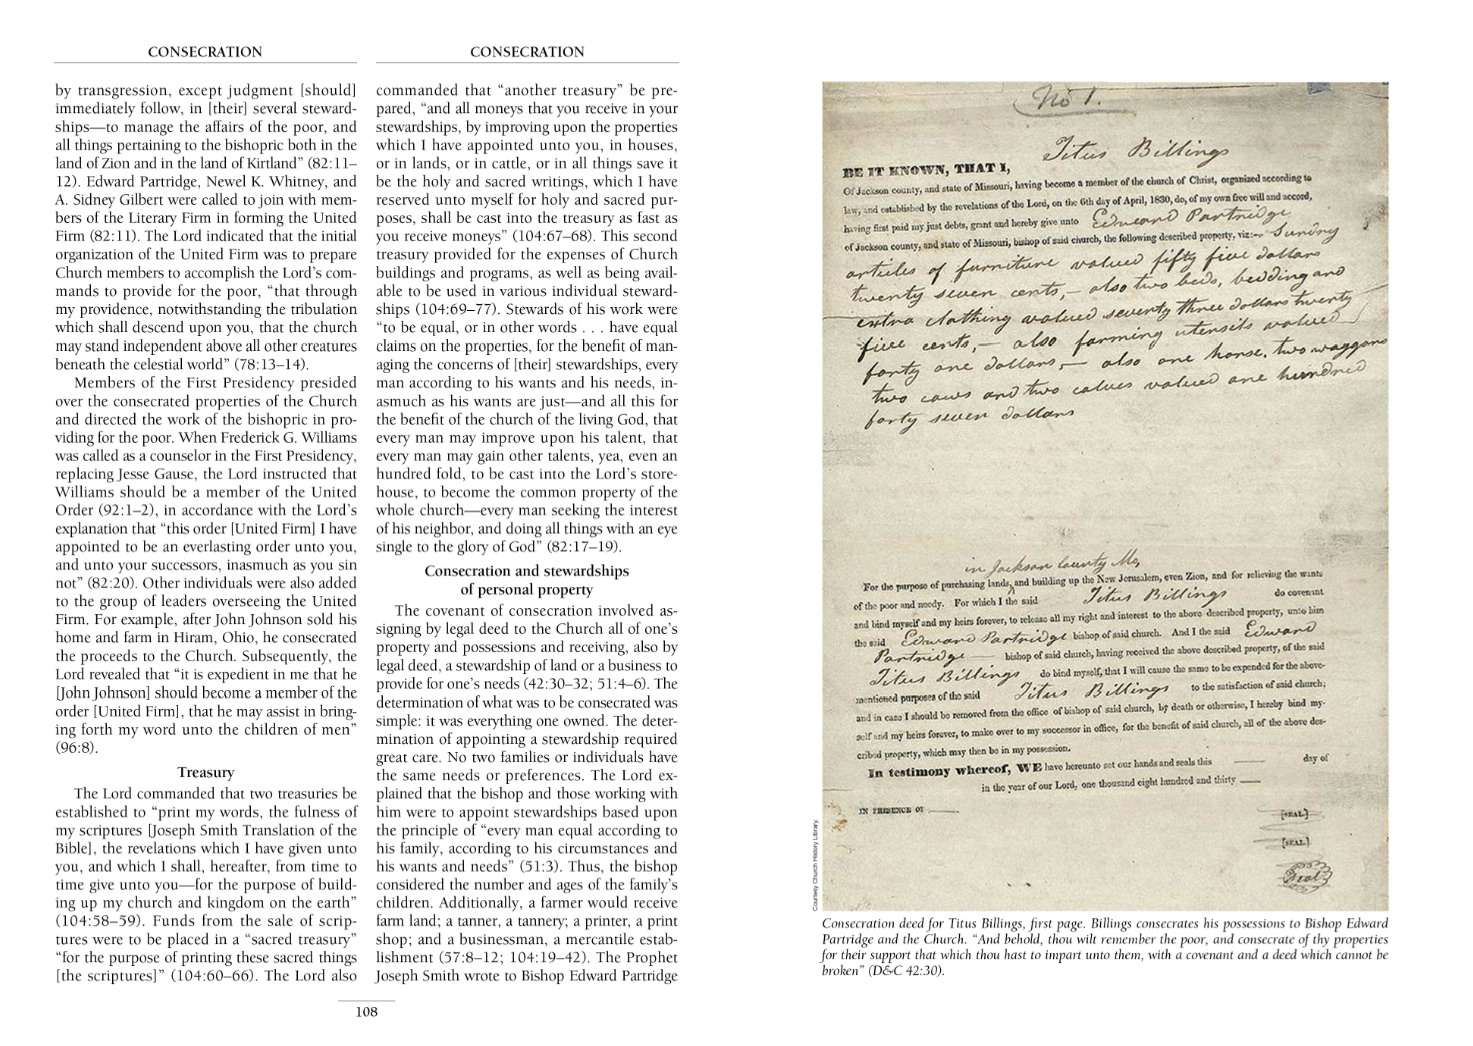 CONSECRATION
by transgression, except judgment [should]
immediately follow, in [their] several steward-
ships—to manage the affairs of the poor, and
all things pertaining to the bishopric both in the
land of Zion and in the land of Kirtland” (82:11–
12). Edward Partridge, Newel K. Whitney, and
A. Sidney Gilbert were called to join with mem-
bers of the Literary Firm in forming the United
Firm (82:11). The Lord indicated that the initial
organization of the United Firm was to prepare
Church members to accomplish the Lord’s com-
mands to provide for the poor, “that through
my providence, notwithstanding the tribulation
which shall descend upon you, that the church
may stand independent above all other creatures
beneath the celestial world” (78:13–14).
Members of the First Presidency presided
over the consecrated properties of the Church
and directed the work of the bishopric in pro-
viding for the poor. When Frederick G. Williams
was called as a counselor in the First Presidency,
replacing Jesse Gause, the Lord instructed that
Williams should be a member of the United
Order (92:1–2), in accordance with the Lord’s
explanation that “this order [United Firm] I have
appointed to be an everlasting order unto you,
and unto your successors, inasmuch as you sin
not” (82:20). Other individuals were also added
to the group of leaders overseeing the United
Firm. For example, after John Johnson sold his
home and farm in Hiram, Ohio, he consecrated
the proceeds to the Church. Subsequently, the
Lord revealed that “it is expedient in me that he
[John Johnson] should become a member of the
order [United Firm], that he may assist in bring-
ing forth my word unto the children of men”
(96:8).
Treasury
The Lord commanded that two treasuries be
established to “print my words, the fulness of
my scriptures [Joseph Smith Translation of the
Bible], the revelations which I have given unto
you, and which I shall, hereafter, from time to
time give unto you—for the purpose of build-
ing up my church and kingdom on the earth”
(104:58–59). Funds from the sale of scrip-
tures were to be placed in a “sacred treasury”
“for the purpose of printing these sacred things
[the scriptures]” (104:60–66). The Lord also
CONSECRATION
commanded that “another treasury” be pre-
pared, “and all moneys that you receive in your
stewardships, by improving upon the properties
which I have appointed unto you, in houses,
or in lands, or in cattle, or in all things save it
be the holy and sacred writings, which I have
reserved unto myself for holy and sacred pur-
poses, shall be cast into the treasury as fast as
you receive moneys” (104:67–68). This second
treasury provided for the expenses of Church
buildings and programs, as well as being avail-
able to be used in various individual steward-
ships (104:69–77). Stewards of his work were
“to be equal, or in other words . . . have equal
claims on the properties, for the benefit of man-
aging the concerns of [their] stewardships, every
man according to his wants and his needs, in-
asmuch as his wants are just—and all this for
the benefit of the church of the living God, that
every man may improve upon his talent, that
every man may gain other talents, yea, even an
hundred fold, to be cast into the Lord’s store-
house, to become the common property of the
whole church—every man seeking the interest
of his neighbor, and doing all things with an eye
single to the glory of God” (82:17–19).
Consecration and stewardships
of personal property
The covenant of consecration involved as-
signing by legal deed to the Church all of one’s
property and possessions and receiving, also by
legal deed, a stewardship of land or a business to
provide for one’s needs (42:30–32; 51:4–6). The
determination of what was to be consecrated was
simple: it was everything one owned. The deter-
mination of appointing a stewardship required
great care. No two families or individuals have
the same needs or preferences. The Lord ex-
plained that the bishop and those working with
him were to appoint stewardships based upon
the principle of “every man equal according to
his family, according to his circumstances and
his wants and needs” (51:3). Thus, the bishop
considered the number and ages of the family’s
children. Additionally, a farmer would receive
farm land; a tanner, a tannery; a printer, a print
shop; and a businessman, a mercantile estab-
lishment (57:8–12; 104:19–42). The Prophet
Joseph Smith wrote to Bishop Edward Partridge
108
No 1.
Titus Billings
BE IT KNOWN, THAT I,
Of Jackson county, and state of Missouri, having become a member of the church of Christ, organized according to
law, and established by the revelations of the Lord, on the 6th day of April, 1830, do, of my own free will and accord,
having first paid my just debts, grant and hereby give unto Edward Partridge
of Jackson county, and state of Missouri, bishop of said church, the following described property, viz:— Sundry
articles of furniture valued fifty five dollars
twenty seven cents,— also two beds, bedding and
extra clothing valued seventy three dollars twenty
five cents,— also farming utensils valued
forty one dollars,— also one horse, two waggons
two cows and two calves valued one hundred
forty seven dollars
in Jackson County Mo,
For the purpose of purchasing lands, and building up the New Jerusalem, even Zion, and for relieving the wants
of the poor and needy. For which I the said Titus Billings do covenant
and bind myself and my heirs forever, to release all my right and interest to the above described property, unto him
the said Edward Partridge bishop of said church. And I the said Edward
Partridge bishop of said church, having received the above described property, of the said
Titus Billings do bind myself, that I will cause the same to be expended for the above-
mentioned purposes of the said Titus Billings to the satisfaction of said church;
and in case I should be removed from the office of bishop of said church, by death or otherwise, I hereby bind my-
self and my heirs forever, to make over to my successor in office, for the benefit of said church, all of the above des-
cribed property, which may then be in my possession.
In testimony whereof, WE have hereunto set our hands and seals this day of
in the year of our Lord, one thousand eight hundred and thirty
IN PRESENCE OF
[SEAL.]
[SEAL.]
Seal
Courtesy Church History Library.
Consecration deed for Titus Billings, first page. Billings consecrates his possessions to Bishop Edward
Partridge and the Church. “And behold, thou wilt remember the poor, and consecrate of thy properties
for their support that which thou hast to impart unto them, with a covenant and a deed which cannot be
broken” (D&C 42:30).